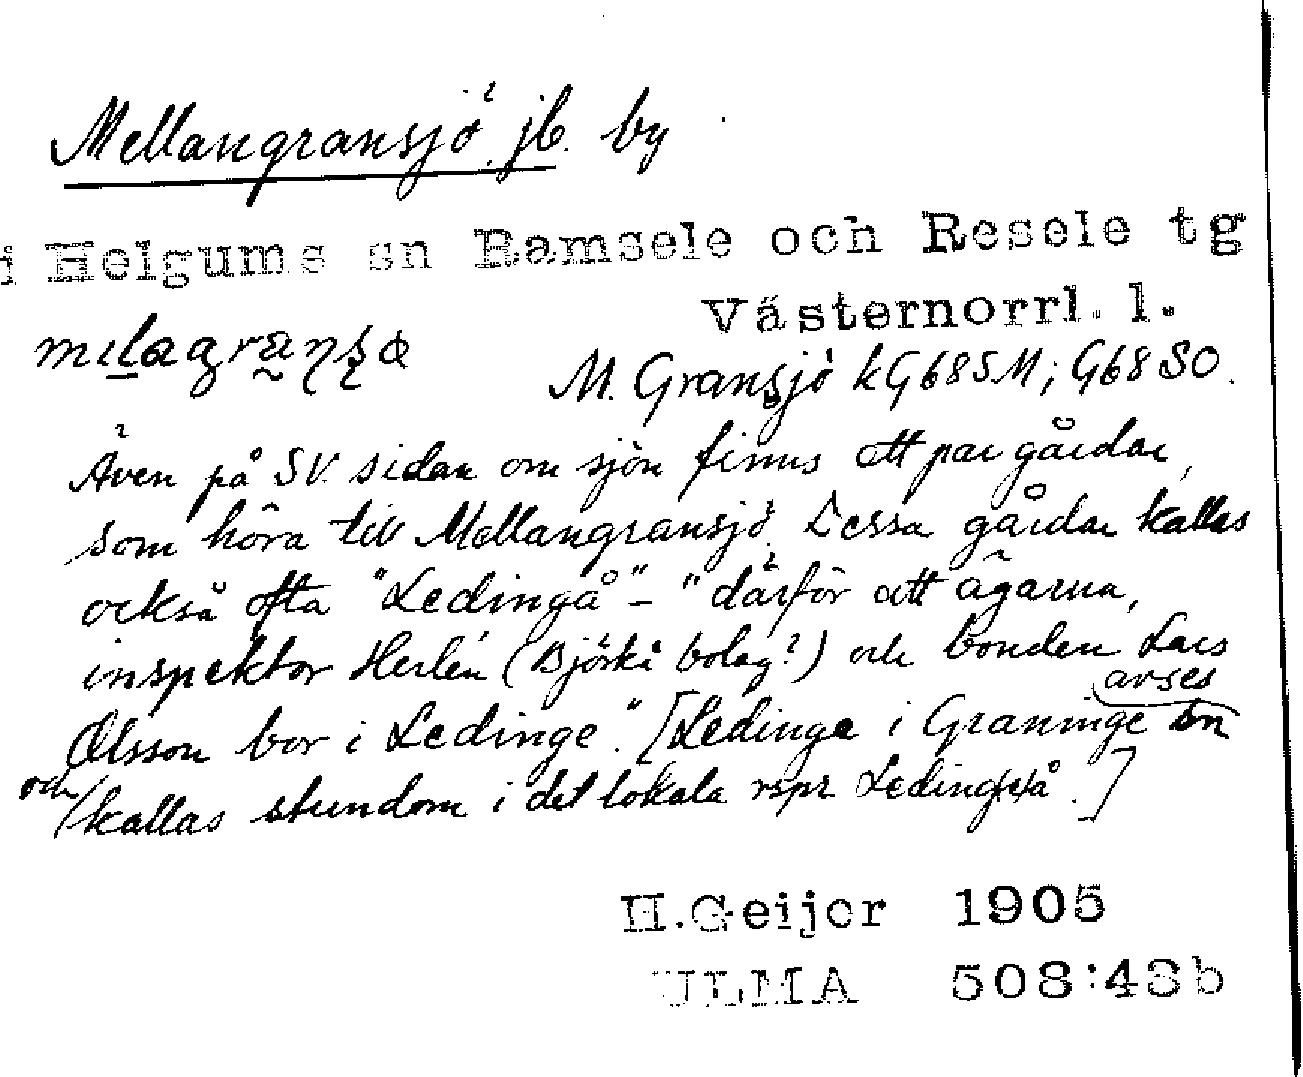 Mellangransjö jb. by
i Helgums sn Ramsele och Resele tg
Västernorrl. l.
M. Gransjö kG68SM; G68SO.
Även på SV. sidan om sjön finns ett par gårdar,
som höra till Mellangransjö. Dessa gårdar kallas
också ofta "Ledingå" – "därför att ägarna,
inspektor Herlén (Björkå bolag?) och bonden Lars
Olsson bor i Ledinge". [Ledinge i Graninge sn avses
och kallas stundom i det lokala rspr Ledingå.]
H.Geijer 1905
ULMA 508:48b